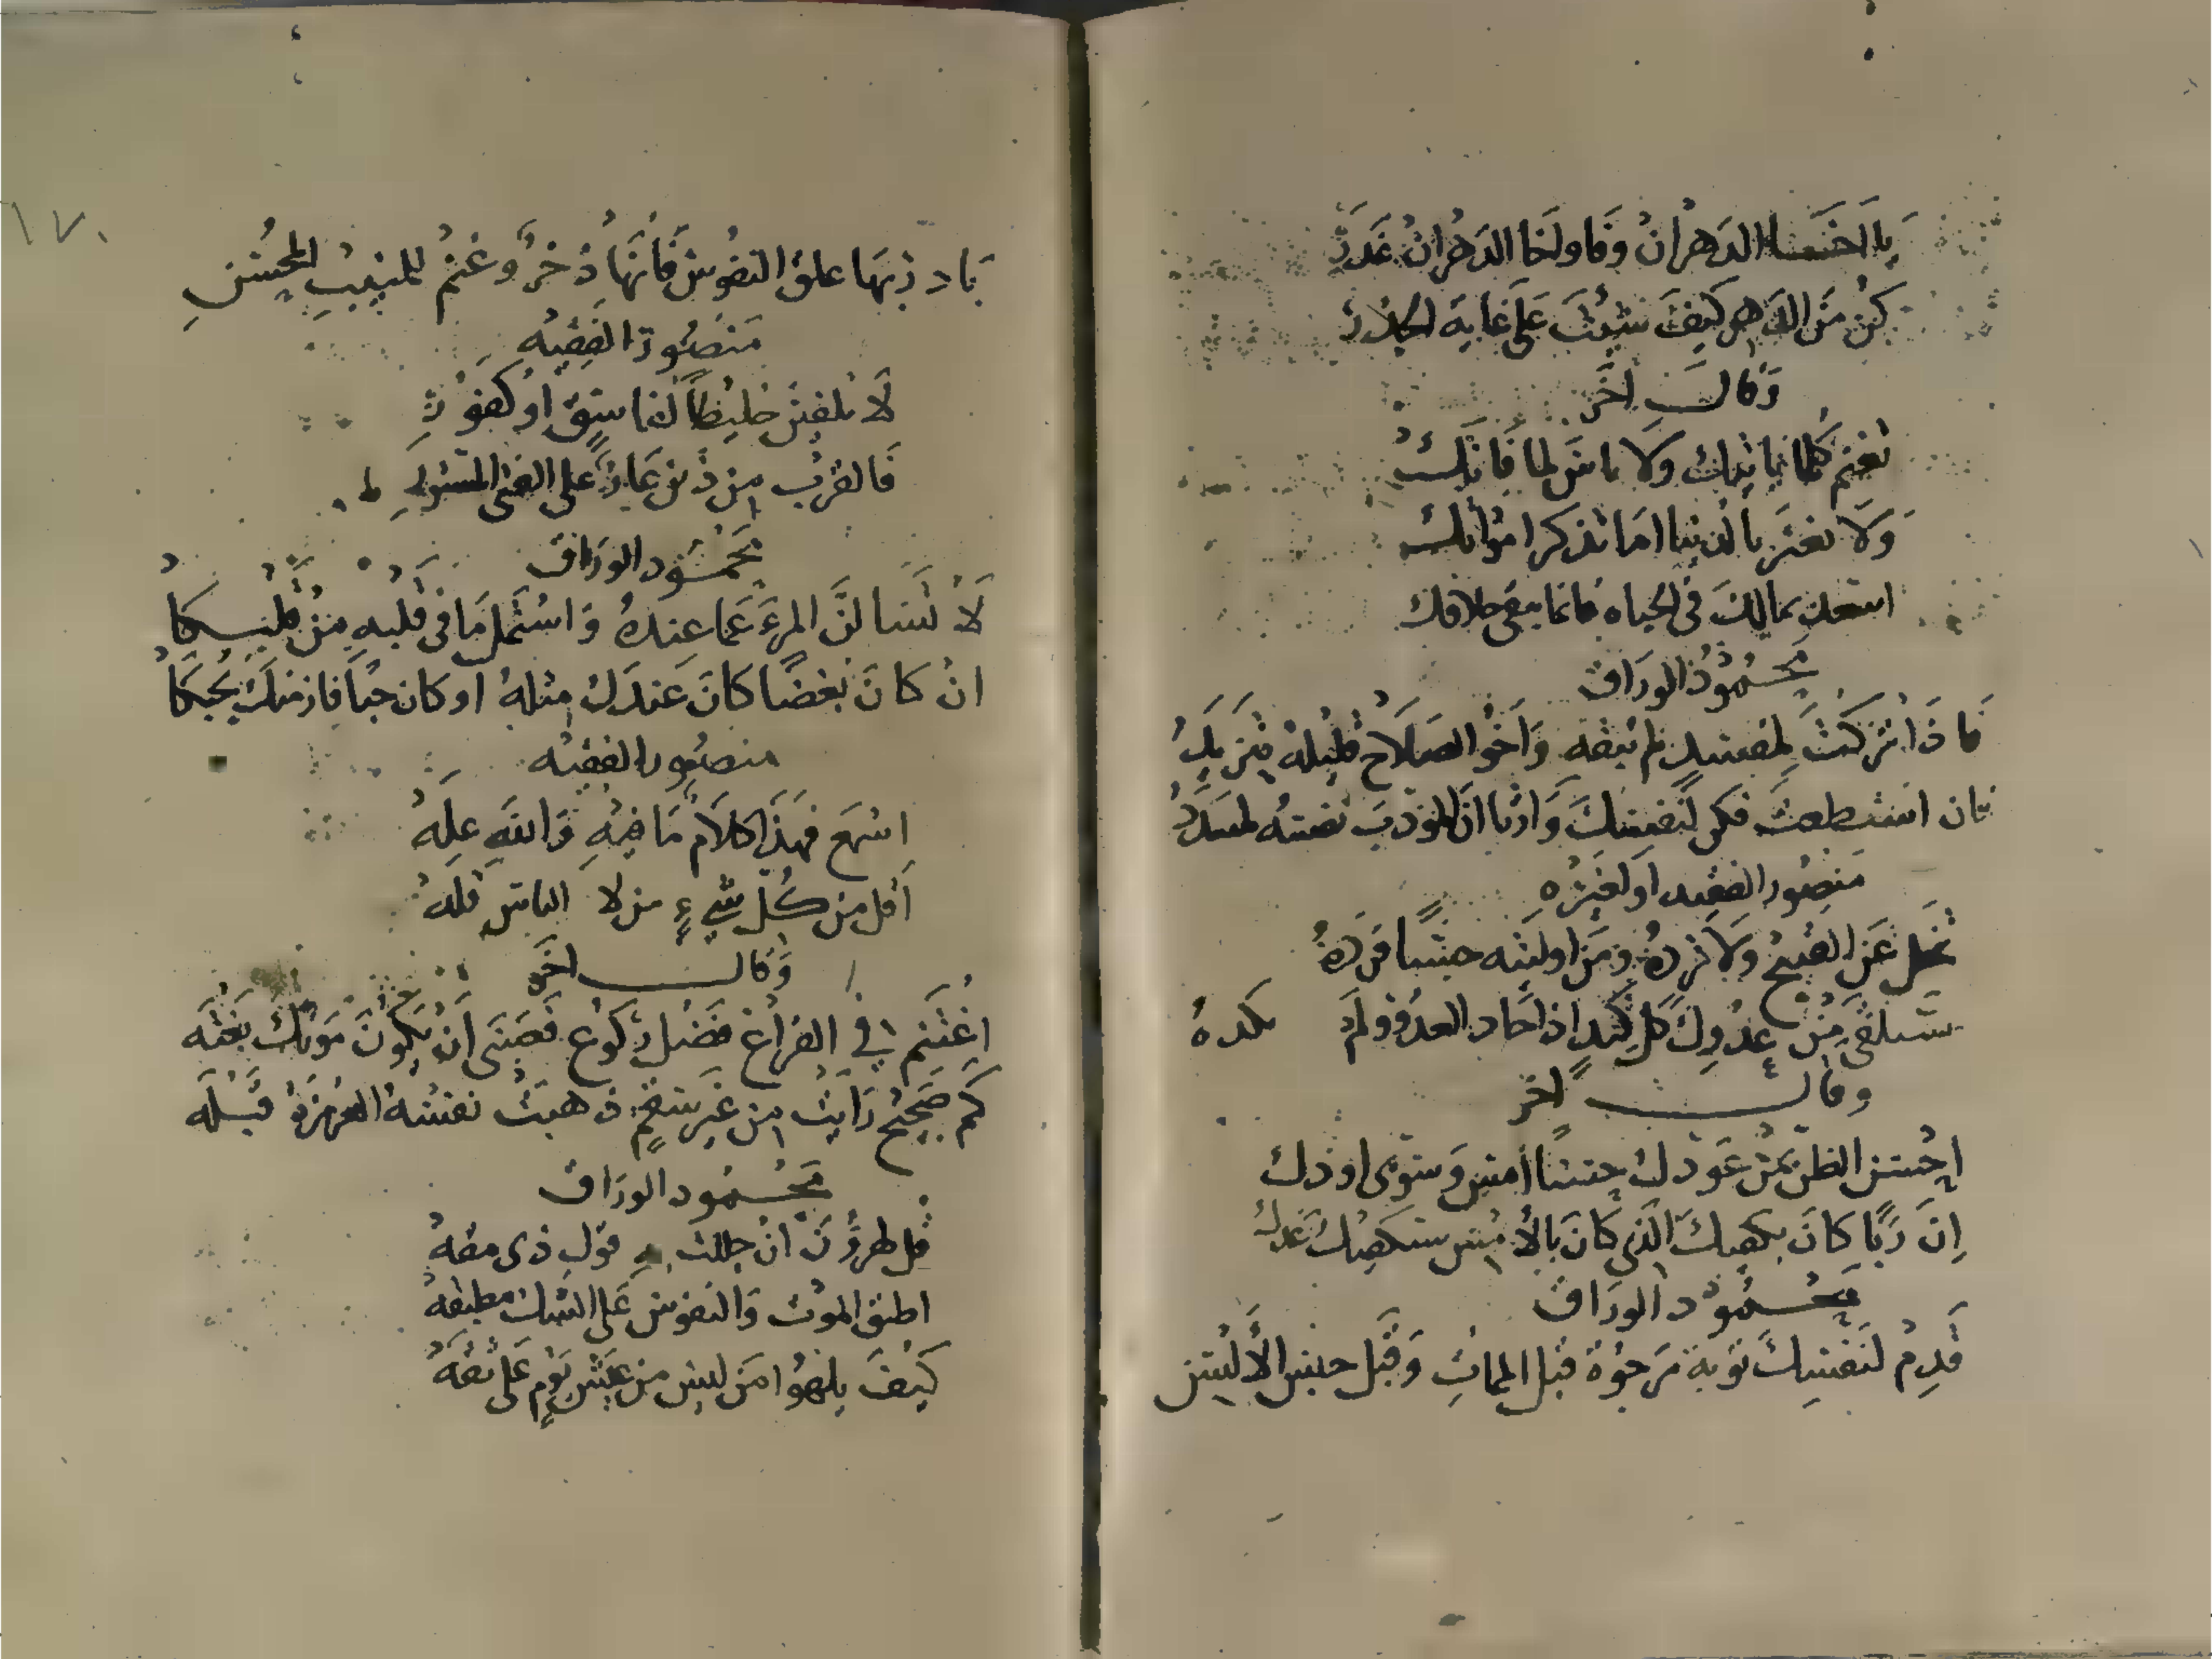 يا اخا الدهر ان وفا ولخا الدهر ان غدر
كن من الدهر كيف شئت على غاية الحذر
وقال اخر
تغنم كلما ياتيك ولا تاس لما فاتك
ولا تغتر بالدنيا اما تذكر امواتك
اسعد بمالك في الحياه فانما يبقى خلافك
محمود الوراق
فاذا تركت لمفسد لم تبقه واخو الصلاح قليله يتزيد
فان استطعت فكن لنفسك وارثا ان المورث نفسه لمسدد
منصور الفقيه او لغيره
تخل عن القبيح ولا ترده ومن اوليته حسنا فزده
ستلقى من عدوك كل كيد اذا كاد العدو ولم تكده
وقال اخر
احسن الظن بمن عودك حسنا امس وسوى اودك
ان ربا كان يكفيك الذي كان بالامس سيكفيك غدك
محمود الوراق
قدم لنفسك توبة مرجوة قبل الممات وقبل حبس الالسن
بادر بها علق النفوس فانها ذخر وغنم للمنيب المحسن
منصور الفقيه
لا تلفين خليطا لفاسق او كفور
فالقرب من ذين عار على الفتى المستور
محمود الوراق
لا تسالن المرء عما عنده واستمل ما في قلبه من قلبكا
ان كان بغضا كان عندك مثله او كان حبا فاز منك بحبكا
منصور الفقيه
اسمع فهذا كلام ما فيه والله عله
اقل من كل شيء من لا الناس قله
وقال اخر
اغتنم في الفراغ فضل ركوع فعسى ان يكون موتك بغته
كم صحيح رايت من غير سقم ذهبت نفسه العزيزة فلته
محمود الوراق
قول ذي مقه
اطبق الموت والنفوس على الشك مطبقه
كيف يلهوا من ليس من عيش يوم على ثقه